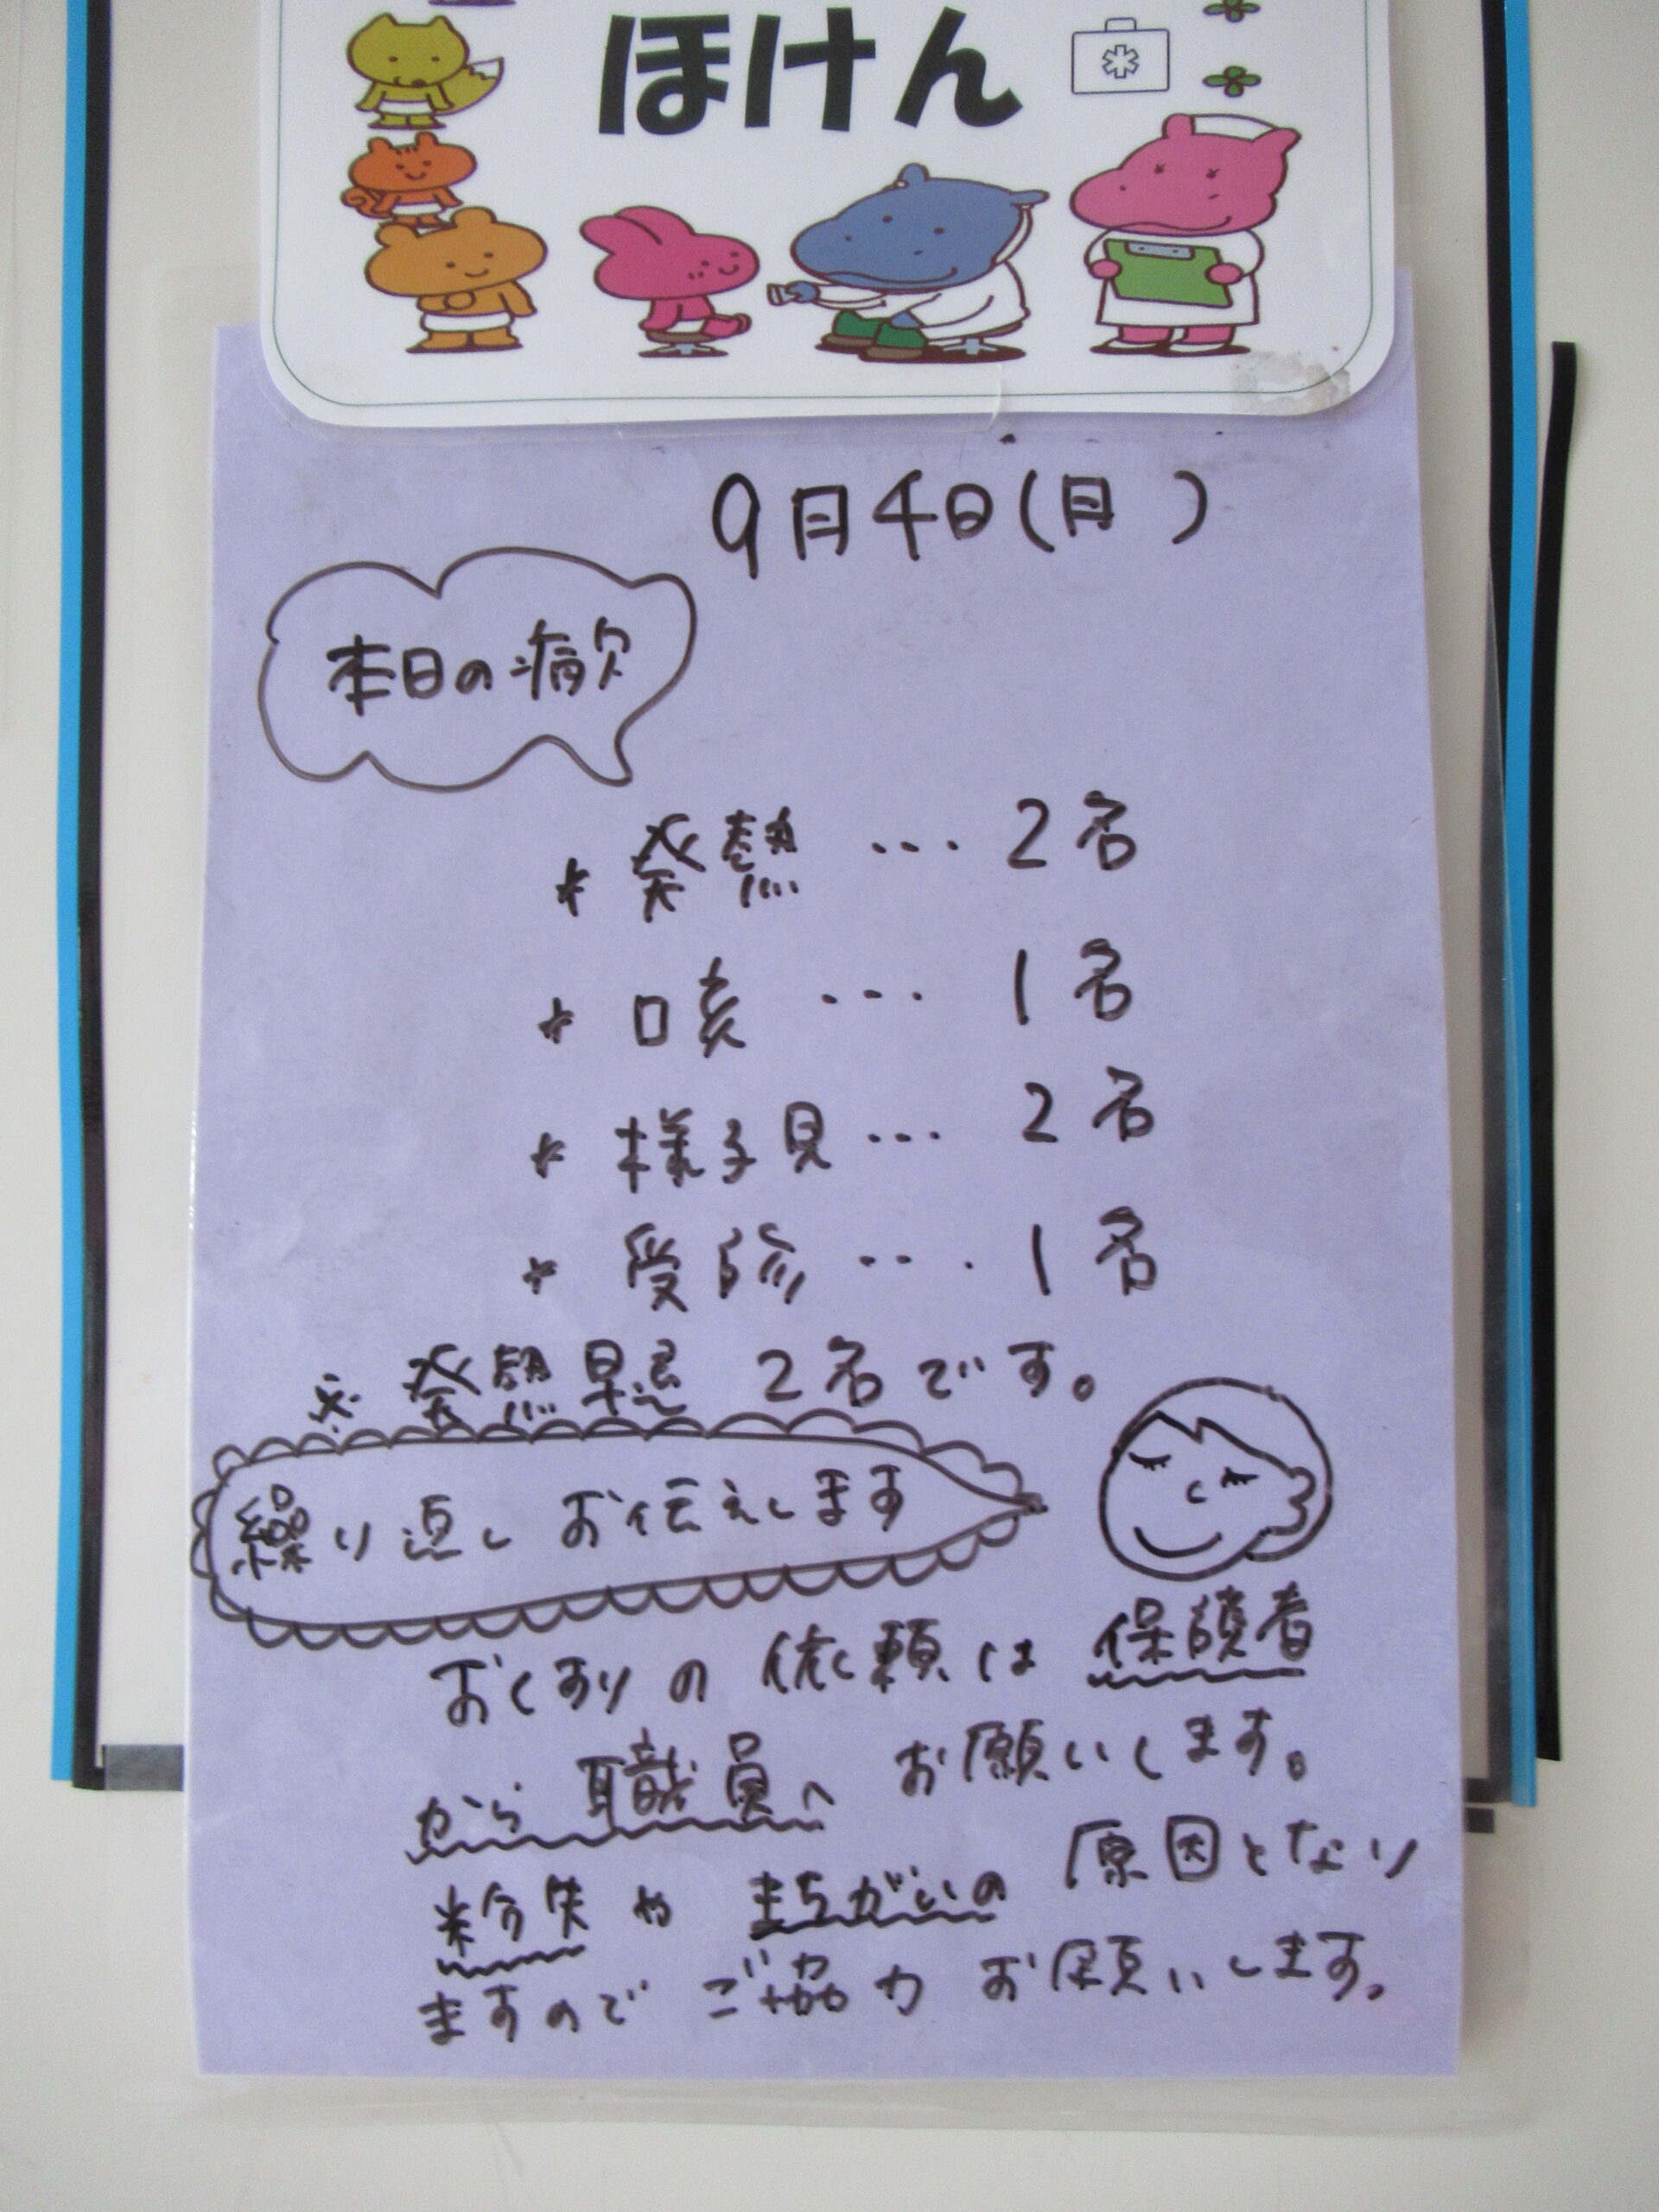 ほけん
9月4日(月 )
本日の病欠
* 発熱 … 2名
* 咳 … 1名
* 様子見 … 2名
* 受診 … 1名
※ 発熱早退 2名です。
繰り返しお伝えします
おくすりの依頼は保護者
から職員へお願いします。
紛失やまちがいの原因となり
ますのでご協力お願いします。